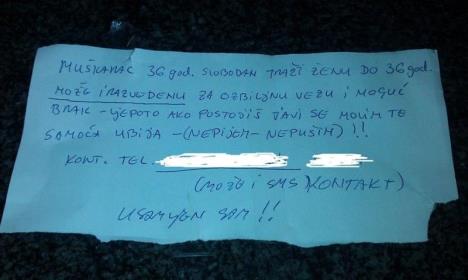 MUŠKARAC 36 god. SLOBODAN TRAŽI ŽENU DO 36 god.
MOŽE I RAZVEDENU ZA OZBILJNU VEZU I MOGUĆ
BRAK - LJEPOTO AKO POSTOJIŠ JAVI SE MOLIM TE
SAMOĆA UBIJA - (NEPIJEM - NEPUŠIM) !!
KONT. TEL.
(MOŽE I SMS) KONTAKT)
USAMLJEN SAM !!